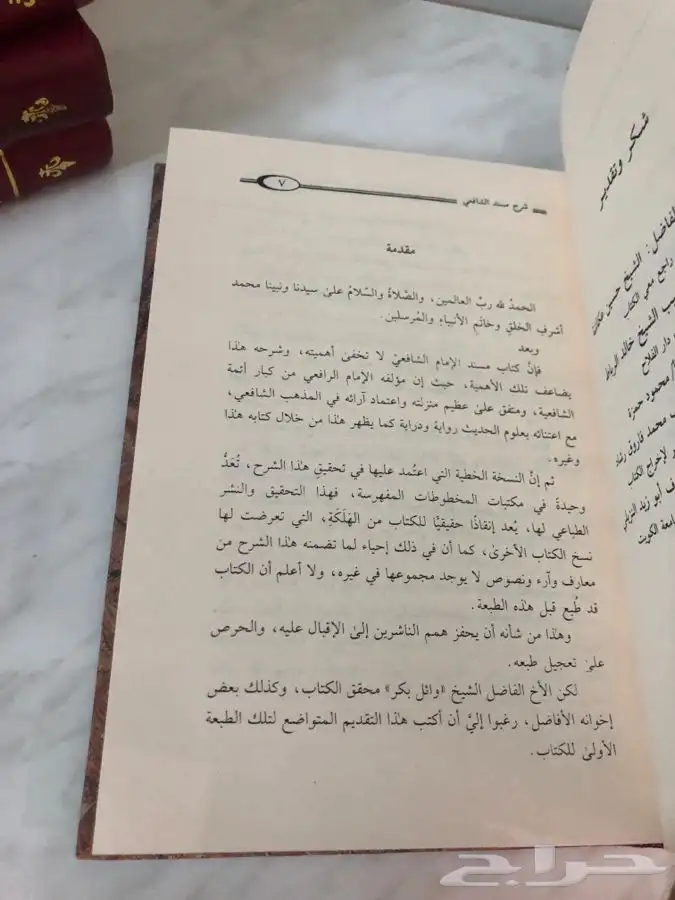 شكر وتقدير
الفاضل: الشيخ حسين
راجع معي الكتاب
الشيخ خالد الرباط
دار الفلاح
محمود حمزة
محمد فاروق رشاد
لإخراج الكتاب
أبو زيد
جامعة الكويت
شرح مسند الشافعي
٧
مقدمة
الحمدُ لله ربِّ العالمين، والصَّلاةُ والسَّلامُ علىٰ سيدنا ونبينا محمد
أشرفِ الخلقِ وخاتمِ الأنبياءِ والمُرسلين.
وبعد
فإنَّ كتاب مسند الإمام الشافعيِّ لا تخفىٰ أهميته، وشرحه هذا
يضاعف تلك الأهمية، حيث إن مؤلفه الإمام الرافعي من كبار أئمة
الشافعية، ومتفق علىٰ عظيم منزلته واعتماد آرائه في المذهب الشافعي،
مع اعتنائه بعلوم الحديث رواية ودراية كما يظهر هذا من خلال كتابه هذا
وغيره.
ثم إنَّ النسخة الخطية التي اعتُمد عليها في تحقيقِ هذا الشرح، تُعَدُّ
وحيدةً في مكتبات المخطوطات المفهرسة، فهذا التحقيق والنشر
الطباعي لها، يُعد إنقاذًا حقيقيًّا للكتاب من الهَلَكَةِ، التي تعرضت لها
نسخ الكتاب الأخرىٰ، كما أن في ذلك إحياء لما تضمنه هذا الشرح من
معارف وآراء ونصوص لا يوجد مجموعها في غيره، ولا أعلم أن الكتاب
قد طُبع قبل هذه الطبعة.
وهذا من شأنه أن يحفز همم الناشرين إلىٰ الإقبال عليه، والحرص
علىٰ تعجيل طبعه.
لكن الأخ الفاضل الشيخ «وائل بكر» محقق الكتاب، وكذلك بعض
إخوانه الأفاضل، رغبوا إليَّ أن أكتب هذا التقديم المتواضع لتلك الطبعة
الأولىٰ للكتاب.
حراج